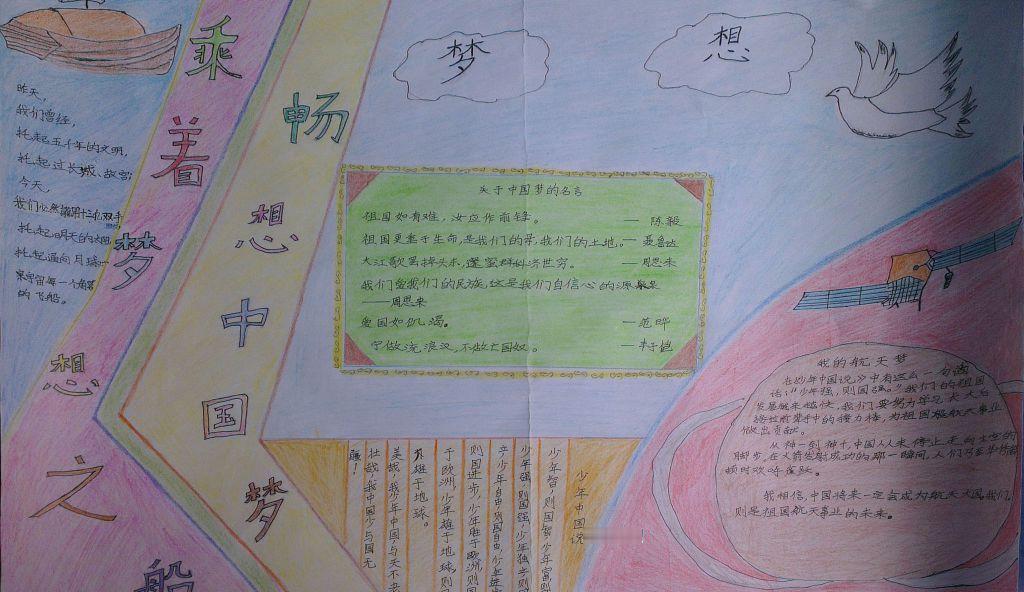 昨天,
我们曾经,
托起五千年的文明,
托起过长城、故宫;
今天,
我们必然 双手,
托起明天的太阳
托起通向月球一
每一个角落
的飞船。
乘着梦想之船
畅想中国梦
梦想
关于中国梦的名言
祖国如有难,汝应作前锋。 — 陈毅
祖国更重于生命,是我们的 ,我们的土地。— 聂鲁达
大江歌罢掉头东,邃密群科济世穷。 — 周恩来
我们爱我们的民族,这是我们自信心的源泉
——周恩来
爱国如饥渴。 — 范晔
宁做流浪汉,不做亡国奴。 — 丰子恺
少年中国说
少年智,则国智少年富则
少年强,则国强,少年独立则国
少年自由,则国自由,少年进步
则国进步,少年胜于欧洲,则国
于欧洲,少年雄于地球,则
雄于地球。
美哉,我少年中国,与天不老
壮哉,我中国少 与国无
疆!
我的航天梦
在《少年中国说》中有这么一句
话:“少年强,则国强。”我们的祖国
发展越来越快,我们要努力学习长大后
接过前辈手中的接力棒,为祖国 航天事业
做出贡献。
从神一到神十,中国人从未停止走向太空的
脚步,在火箭发射成功的那一瞬间,人们
顿时欢呼雀跃。
我相信,中国将来一定会成为航天大国,我们,
则是祖国航天事业的未来。